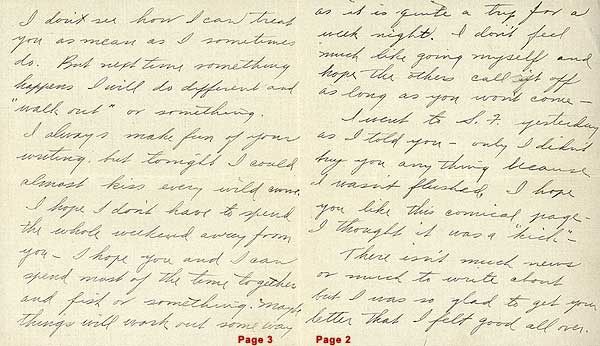 I don't see how I can treat
you as mean as I sometimes
do. But next time something
happens I will do different and
"walk out" or something.
I always make fun of your
writing. but tonight I could
almost kiss every wild
I hope I don't have to spend
the whole weekend away from
you - I hope you and I can
spend most of the time together
and or something. Maybe
things will work out some way
Page 3
as it is quite a trip for a
week night. I don't feel
much like going myself and
hope the others call it off
as long as you won't come -
I went to S. F. yesterday
as I told you - only I didn't
buy you any thing because
I wasn't flushed. I hope
you like this comical page -
I thought it was a "kick" -
There isn't much news
or much to write about
but I was so glad to get your
letter that I felt good all over.
Page 2